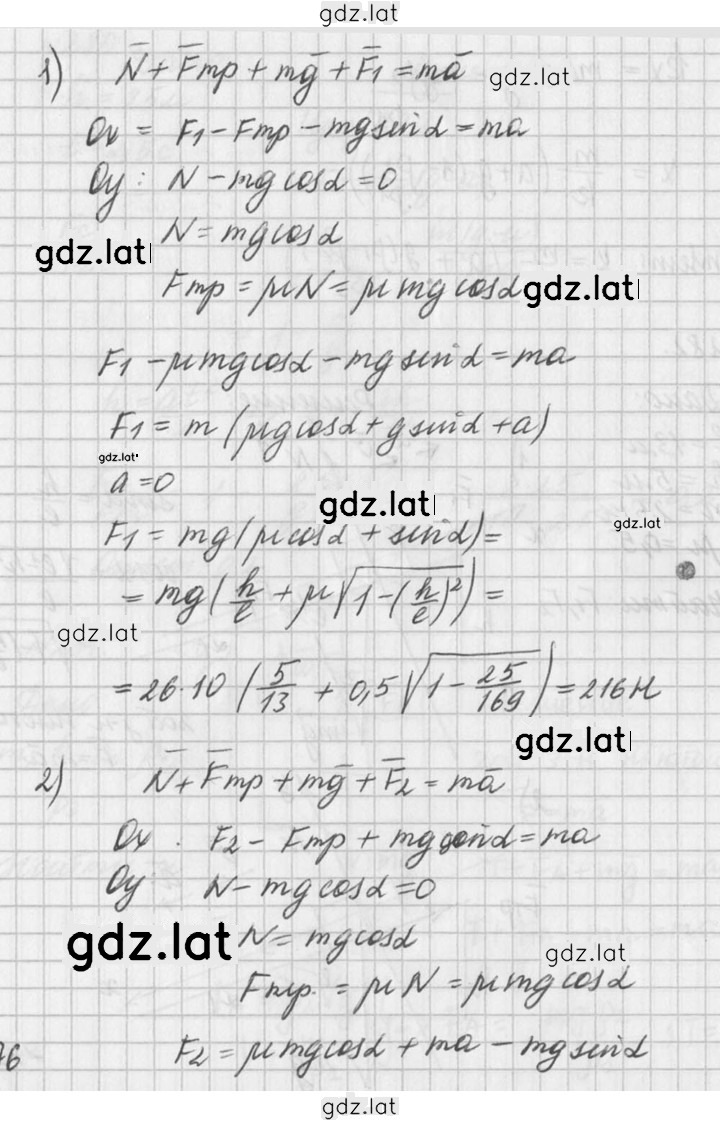 gdz.lat
1) N̄ + F̄тр + mḡ + F̄₁ = mā
gdz.lat
Ox = F₁ - Fтр - mg sinα = ma
Oy: N - mg cosα = 0
N = mg cosα
gdz.lat
Fтр = μN = μmg cosα
gdz.lat
F₁ - μmg cosα - mg sinα = ma
F₁ = m(μg cosα + g sinα + a)
gdz.lat
a = 0
gdz.lat
gdz.lat
F₁ = mg(μcosα + sinα) =
= mg(h/ℓ + μ√(1 - (h/ℓ)²)) =
gdz.lat
= 26·10 (5/13 + 0,5√(1 - 25/169)) = 216 Н
gdz.lat
2) N̄ + F̄тр + mḡ + F̄₂ = mā
Ox . F₂ - Fтр + mg sinα = ma
Oy N - mg cosα = 0
gdz.lat
N = mg cosα
gdz.lat
Fтр. = μN = μmg cosα
F₂ = μmg cosα + ma - mg sinα
76
gdz.lat